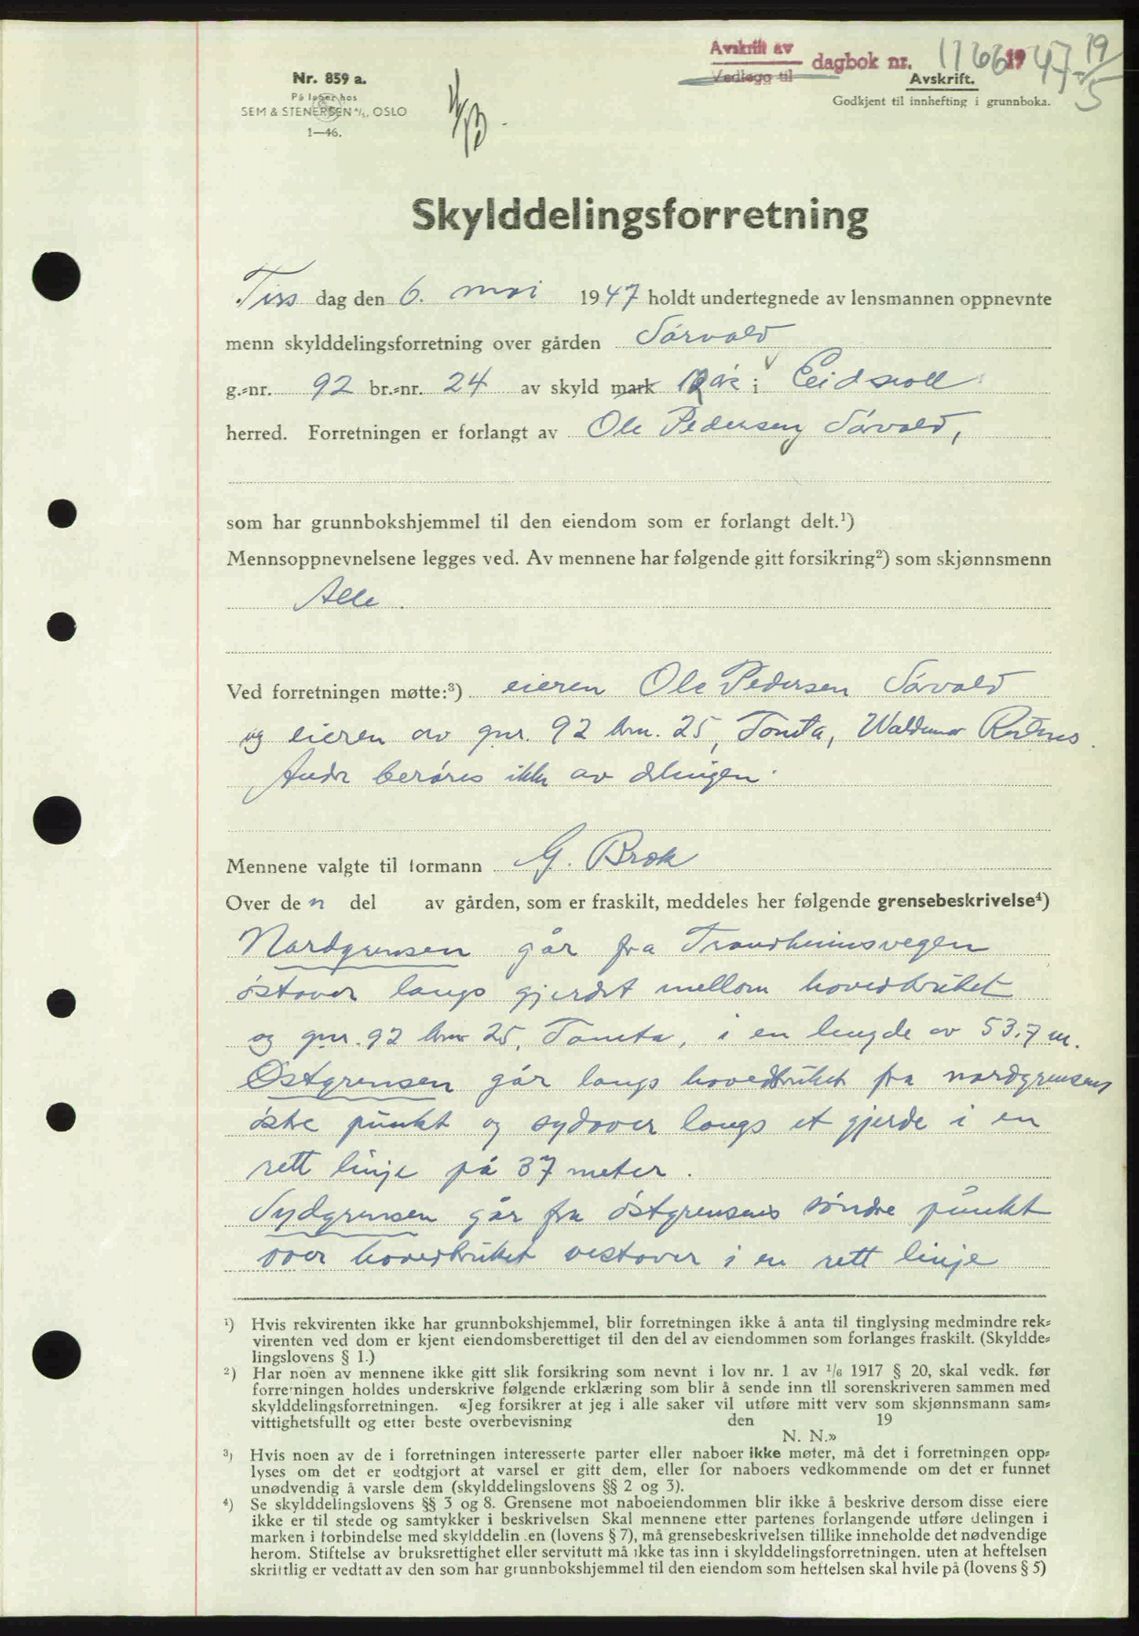 Avskrift av
Vedlegg til
dagbok nr. 1166 1947 19/5
Nr. 859 a.
På lager hos
SEM & STENERSEN A/S, OSLO
1—46.
Avskrift.
Godkjent til innhefting i grunnboka.
Skylddelingsforretning
Tirs dag den 6. mai 1947 holdt undertegnede av lensmannen oppnevnte
menn skylddelingsforretning over gården Sørvold
g.-nr. 92 br.-nr. 24 av skyld mark øre i Eidsvoll
herred. Forretningen er forlangt av Ole Pedersen Sørvold,
som har grunnbokshjemmel til den eiendom som er forlangt delt.¹)
Mennsoppnevnelsene legges ved. Av mennene har følgende gitt forsikring²) som skjønnsmenn
Alle.
Ved forretningen møtte:³) eieren Ole Pedersen Sørvold
og eieren av gnr. 92 brn. 25, Tomta, Waldemar
Andre berøres ikke av delingen.
Mennene valgte til formann G. Brok
Over den del av gården, som er fraskilt, meddeles her følgende grensebeskrivelse⁴)
Nordgrensen går fra Trondheimsvegen
østover langs gjerdet mellom hovedbruket
og gnr. 92 brn 25, Tomta, i en lengde av 53,7 m.
Østgrensen går langs hovedbruket fra nordgrensens
østre punkt og sydover langs et gjerde i en
rett linje på 37 meter.
Sydgrensen går fra østgrensens søndre punkt
over hovedbruket vestover i en rett linje
¹) Hvis rekvirenten ikke har grunnbokshjemmel, blir forretningen ikke å anta til tinglysing medmindre rek-
virenten ved dom er kjent eiendomsberettiget til den del av eiendommen som forlanges fraskilt. (Skyldde-
lingslovens § 1.)
²) Har noen av mennene ikke gitt slik forsikring som nevnt i lov nr. 1 av 1/6 1917 § 20, skal vedk. før
forretningen holdes underskrive følgende erklæring som blir å sende inn til sorenskriveren sammen med
skylddelingsforretningen. «Jeg forsikrer at jeg i alle saker vil utføre mitt verv som skjønnsmann sam-
vittighetsfullt og etter beste overbevisning den 19
N. N.»
³) Hvis noen av de i forretningen interesserte parter eller naboer ikke møter, må det i forretningen opp-
lyses om det er godtgjort at varsel er gitt dem, eller for naboers vedkommende om det er funnet
unødvendig å varsle dem (skylddelingslovens §§ 2 og 3).
⁴) Se skylddelingslovens §§ 3 og 8. Grensene mot naboeiendommen blir ikke å beskrive dersom disse eiere
ikke er til stede og samtykker i beskrivelsen Skal mennene etter partenes forlangende utføre delingen i
marken i forbindelse med skylddelin en (lovens § 7), må grensebeskrivelsen tillike inneholde det nødvendige
herom. Stiftelse av bruksrettighet eller servitutt må ikke tas inn i skylddelingsforretningen. uten at heftelsen
skriftlig er vedtatt av den som har grunnbokshjemmel til den eiendom som heftelsen skal hvile på (lovens § 5)